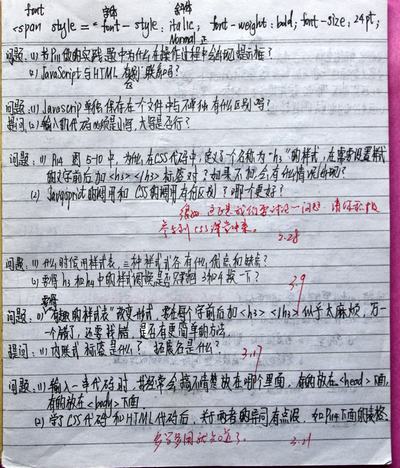 font 字体
<span style="font-style: italic; font-weight: bold; font-size: 24pt;
Normal 正
问题: (1) 书P11做的实践题中为什么在操作过程中会出现提示框?
(2) JavaScript 与 HTML 有联系吗?
问题: (1) Javascrip 单独保存在一个文件中与不单独有什么区别吗?
提问: (2) 输入的代码必须是小写, 大写是否行?
问题: (1) P114 图5-10中, 为什么在CSS代码中, 定义了个名称为"h3"的样式, 在需要设置样式
的文字前后加<h3></h3>标签对? 如果不加会有什么情况出现?
(2) Javaspript的调用和CSS的调用有何区别? 哪个更好?
很好
2.28
问题: (1) 什么时候用样式表, 三种样式各有什么优点和缺点?
(2) 要将h3和h4中的样式调换是否只要把3和4换一下?
3.9
问题: (1) "有趣的样式表"改变形式, 要在每个字前后加<h3></h3>似乎太麻烦, 万一
一个错了, 还要找错, 是否有更简单的方法
提问: (1) 内嵌式标签是什么? 拓展名是什么?
3.17
问题: (1) 输入一串代码时, 我经常会搞不清楚放在哪个里面, 有的放在<head>下面,
有的放在<body>下面
(2) 学了CSS代码和HTML代码后, 关于两者的异同有点混, 如P114下面的表格.
多学多用就知道了.
3.21